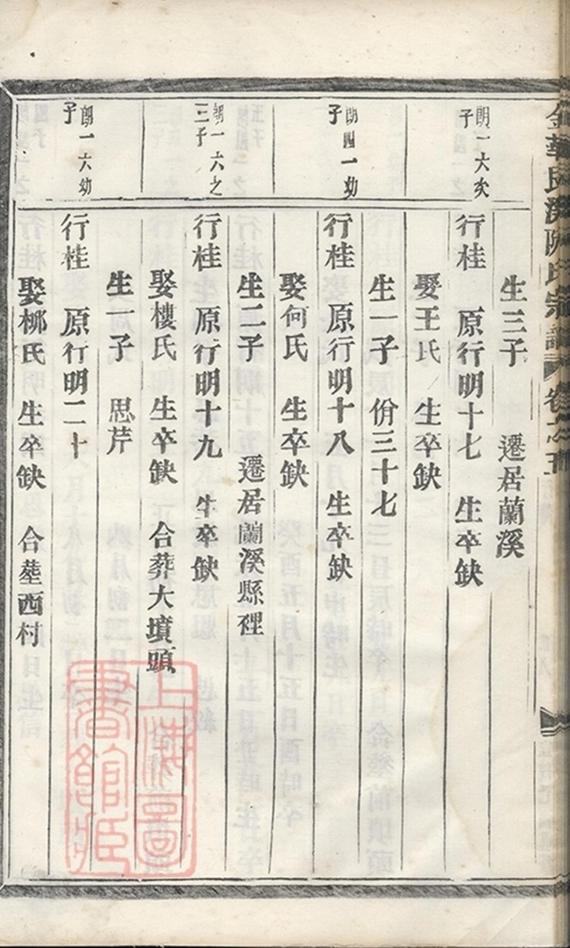 生三子 遷居蘭溪
朗一六次子
行桂 原行明十七 生卒缺
娶王氏 生卒缺
生一子 份三十七
朗四一幼子
行桂 原行明十八 生卒缺
娶何氏 生卒缺
生二子 遷居蘭溪縣裡
朗一六之三子
行桂 原行明十九 生卒缺
娶樓氏 生卒缺 合葬大墳頭
生一子 思芹
朗一六幼子
行桂 原行明二十
娶柳氏 生卒缺 合塟西村
上海圖書館藏